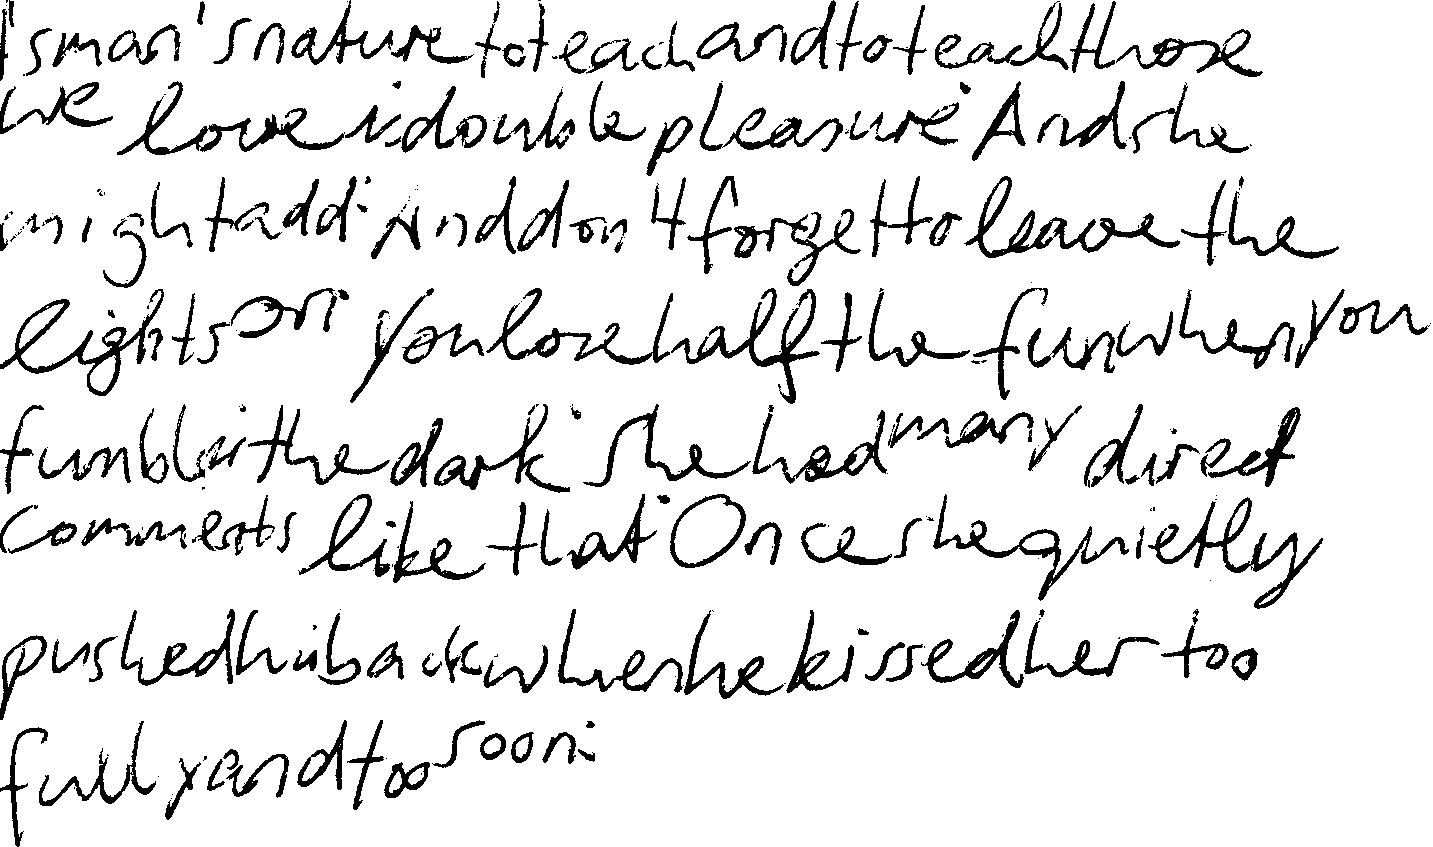 'Is man's nature to teach and to teach those
we love is double pleasure. And she
might add. And don't forget to leave the
lights on. You lose half the fun when you
fumble in the dark. She had many direct
comments like that. Once she quietly
pushed him back when he kissed her too
fully and too soon.